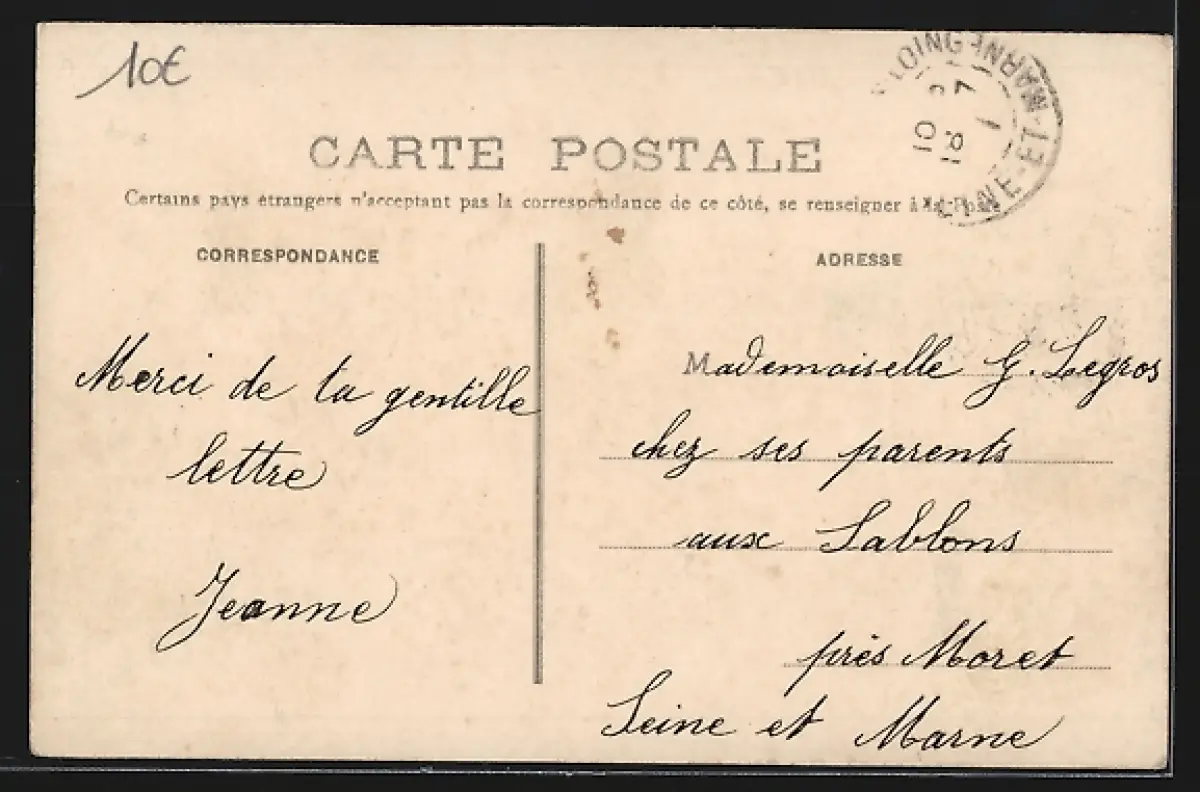 10€
CARTE POSTALE
Certains pays étrangers n'acceptant pas la correspondance de ce côté, se renseigner à la Poste
CORRESPONDANCE
Merci de ta gentille
lettre
Jeanne
ADRESSE
Mademoiselle G. Legros
chez ses parents
aux Sablons
près Moret
Seine et Marne
ET-MARNE